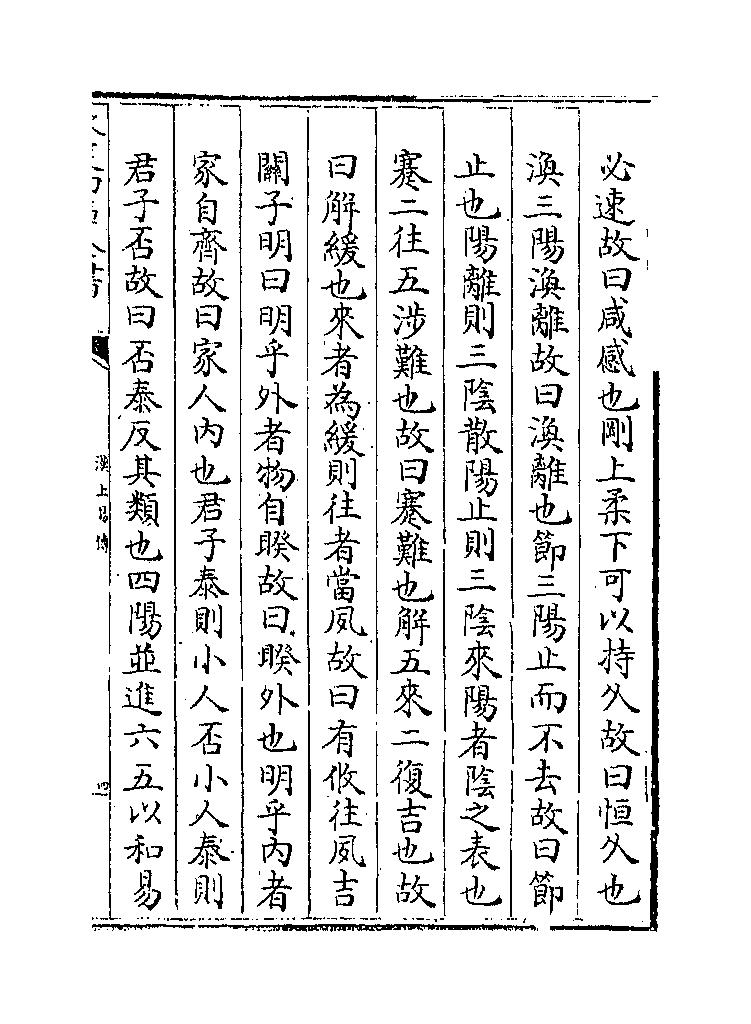 必速故曰咸感也剛上柔下可以持久故曰恒久也
渙三陽渙離故曰渙離也節三陽止而不去故曰節
止也陽離則三陰散陽止則三陰來陽者陰之表也
蹇二往五涉難也故曰蹇難也解五來二復吉也故
曰解緩也來者為緩則往者當夙故曰有攸往夙吉
關子明曰明乎外者物自睽故曰睽外也明乎內者
家自齊故曰家人内也君子泰則小人否小人泰則
君子否故曰否泰反其類也四陽並進六五以和易
漢上易傳
四